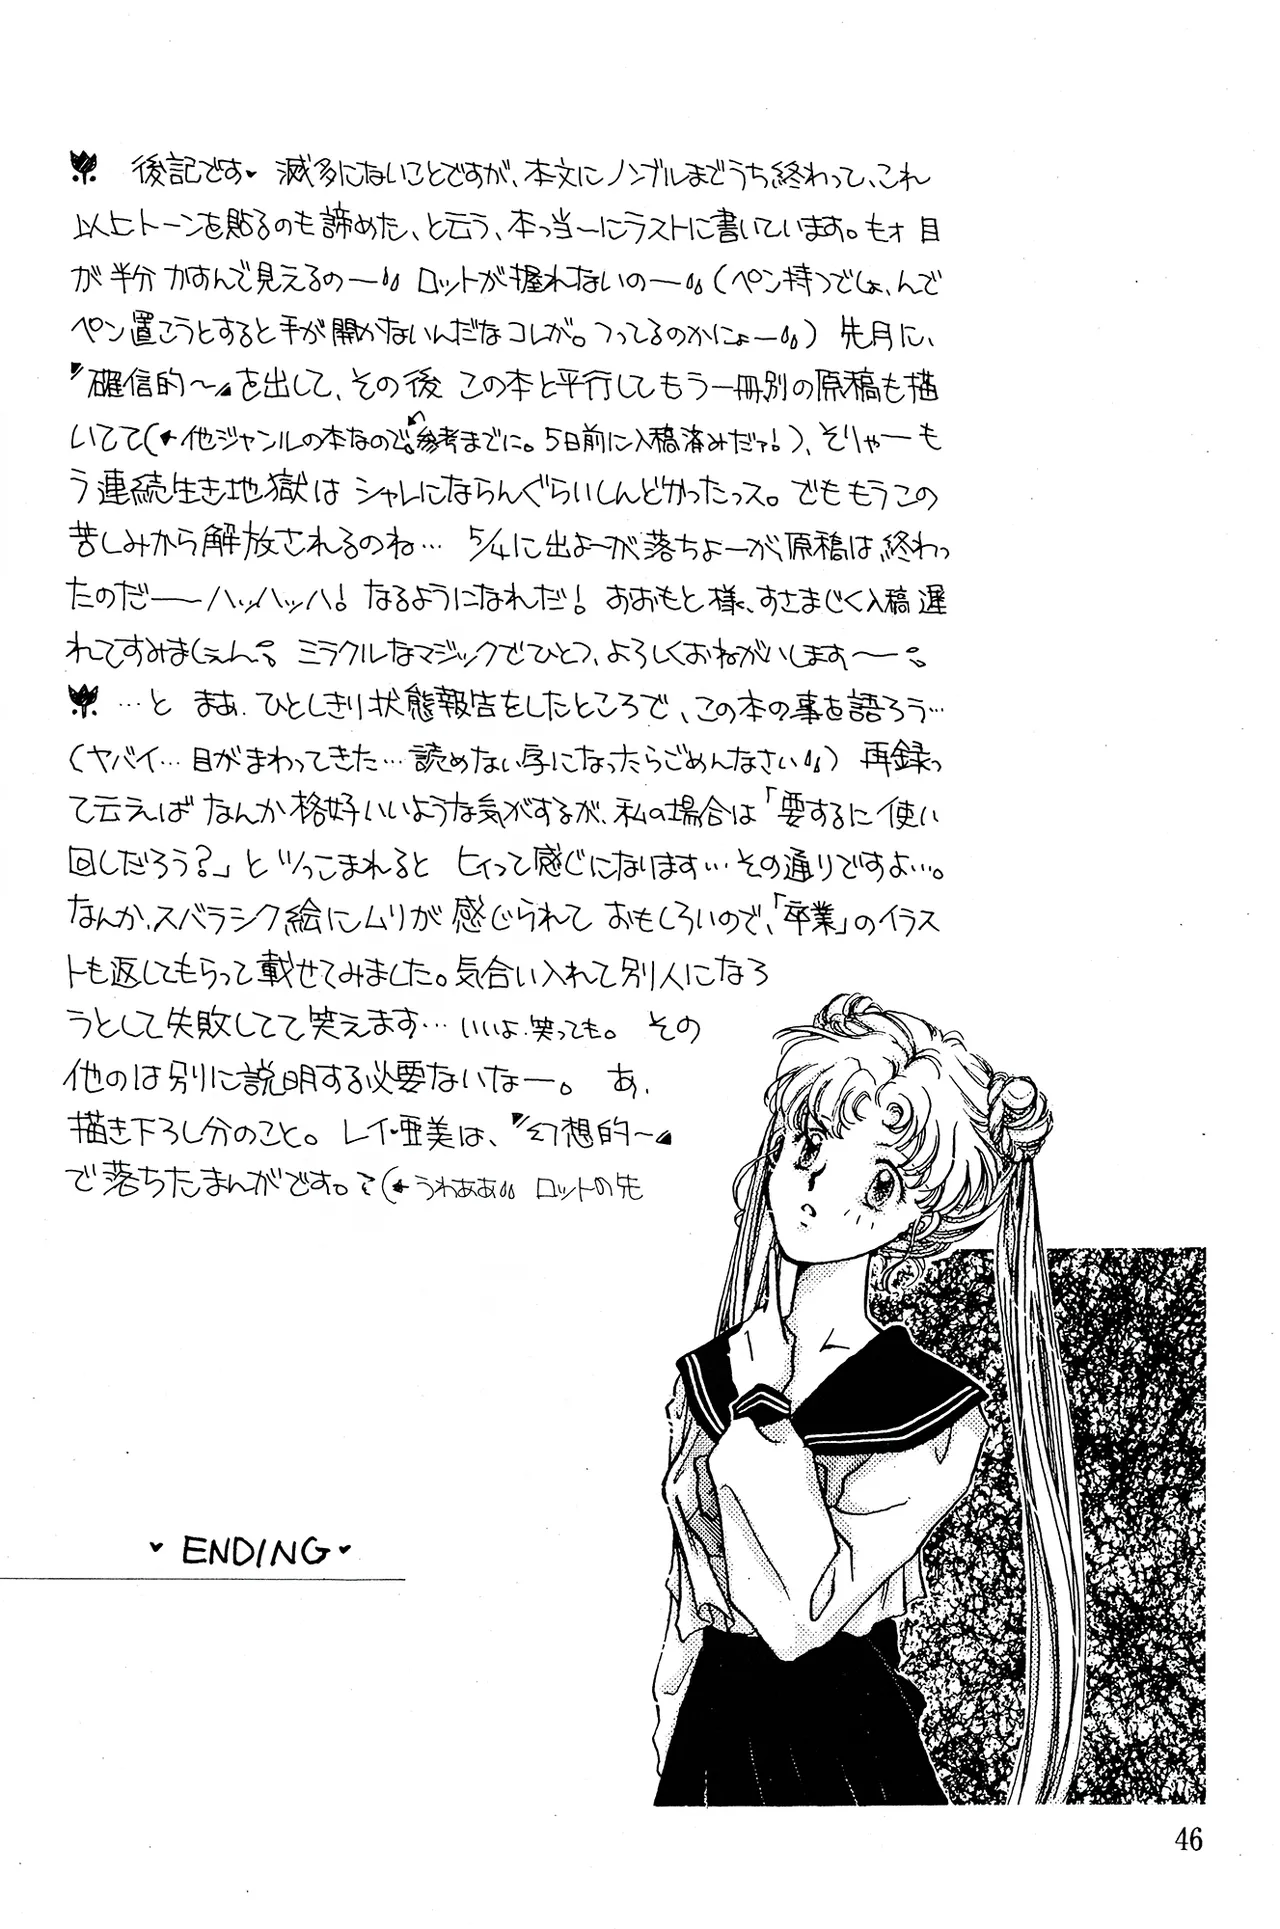 後記です♥ 滅多にないことですが、本文にノンブルまでうち終わって、これ
以上トーンを貼るのも諦めた、と云う、本っ当ーにラストに書いています。もォ目
が半分かすんで見えるのー ロットが握れないのー(ペン持つでしょ、んで
ペン置こうとすると手が開かないんだなコレが。つってるのかにょー)先月に、
〝確信的〜〟を出して、その後 この本と平行してもう一冊別の原稿も描
いてて(←他ジャンルの本なので参考までに。5日前に入稿済みだァ!)、そりゃーも
う連続生き地獄は シャレにならんぐらいしんどかったっス。でももうこの
苦しみから解放されるのね… 5/4に出よーが落ちよーが、原稿は、終わっ
たのだーーハッハッハ! なるようになれだ! おおもと様、すさまじく入稿遅
れてすみましぇん。 ミラクルなマジックでひとつ、よろしくおねがいします〜。
…と まあ、ひとしきり状態報告をしたところで、この本の事を語ろう…
(ヤバイ…目がまわってきた…読めない字になったらごめんなさい) 再録っ
て云えば なんか格好いいような気がするが、私の場合は「要するに使い
回しだろう?」と ツっこまれると ヒィって感じになります…その通りですよ…。
なんか、スバラシク絵にムリが感じられて おもしろいので、「卒業」のイラス
トも返してもらって載せてみました。気合い入れて別人になろ
うとして失敗してて笑えます… いいよ、笑っても。 その
他のは別に説明する必要ないなー。 あ、
描き下ろし分のこと。 レイ・亜美は、〝幻想的〜〟
で落ちたまんがです。て(←うわああ ロットの先
♥ ENDING ♥
46